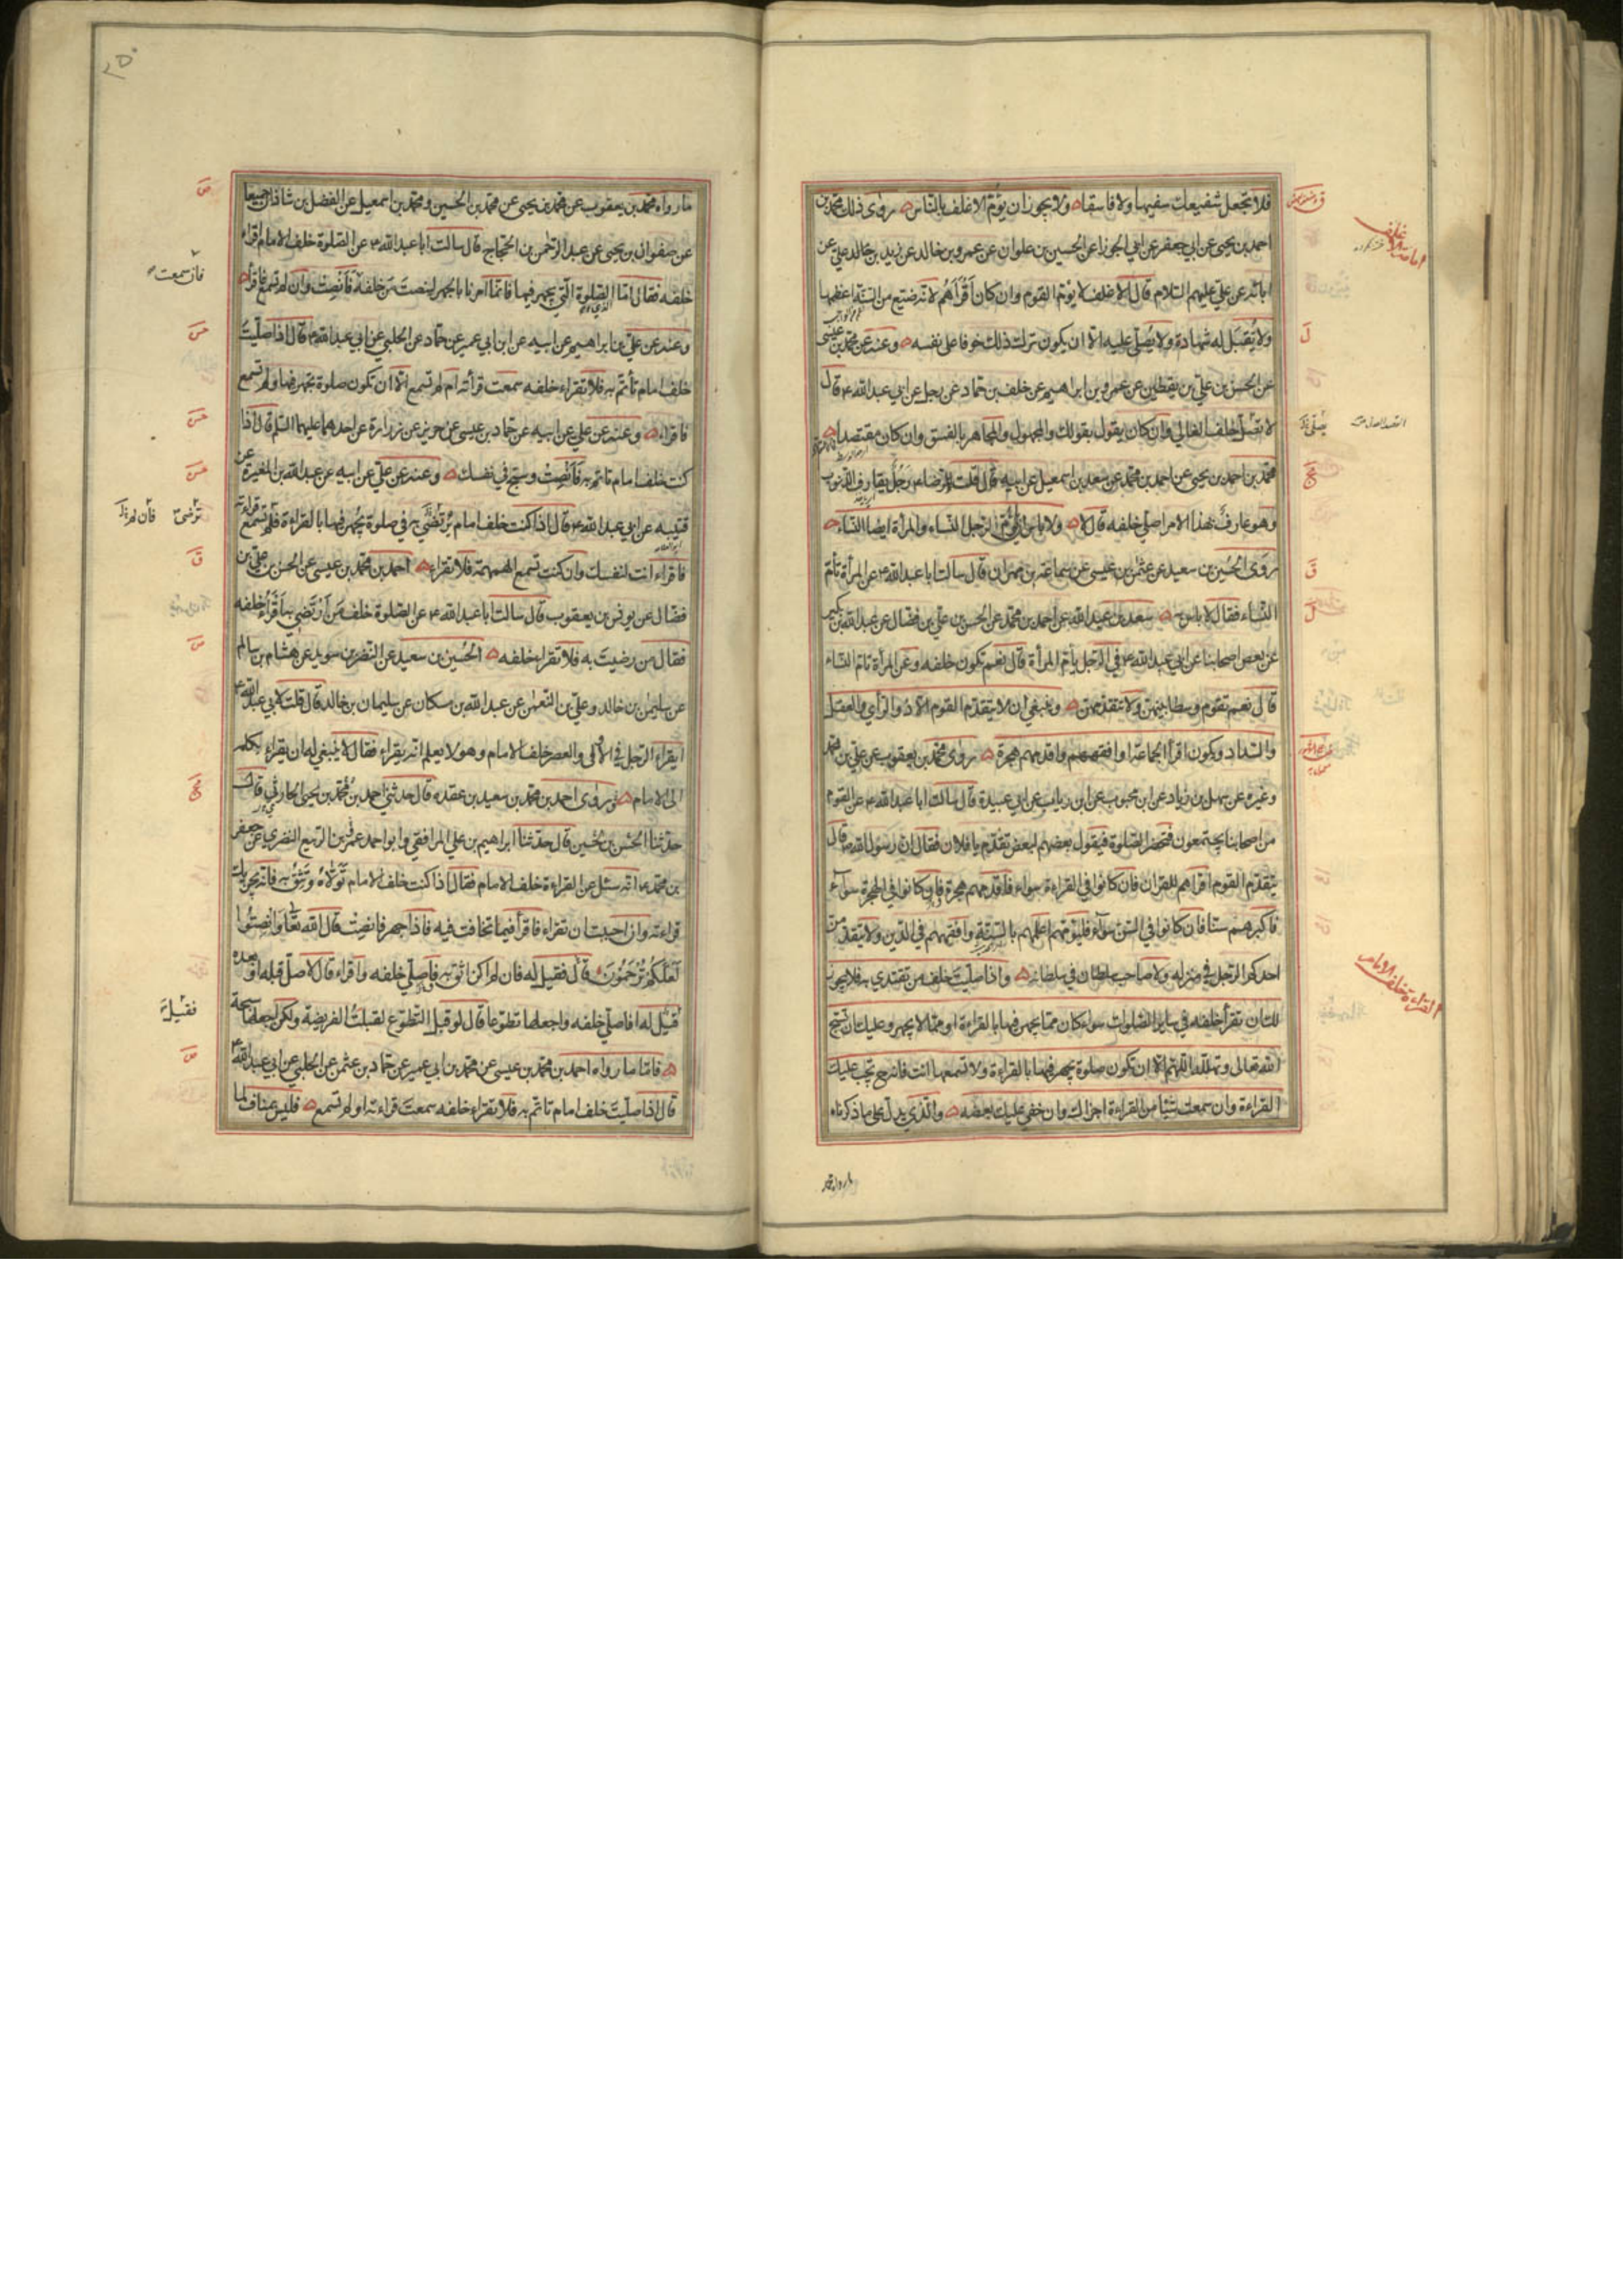 فلا تجعل شفيعك سفيها ولا فاسقا ولا يجوز ان يؤم الاغلف بالناس روى ذلك محمد بن
احمد بن يحيى عن ابي جعفر عن ابي الجوزا عن الحسين بن علوان عن عمرو بن خالد عن زيد بن علي عن
ابائه عن علي عليهم السلام قال الاغلف لا يؤم القوم وان كان أقرأهم لانه ضيع من السنة اعظمها
ولا يقبل له شهادة ولا يصلى عليه الا ان يكون ترك ذلك خوفا على نفسه وعنه عن محمد بن عيسى
عن الحسن بن علي بن يقطين عن عمرو بن ابراهيم عن خلف بن حماد عن رجل عن ابي عبد الله ع قال
لا تصل خلف الغالي وان كان يقول بقولك والمجهول والمجاهر بالفسق وان كان مقتصدا
محمد بن احمد بن يحيى عن احمد بن محمد عن سعد بن اسمعيل عن ابيه قال قلت للرضا ع رجل يقارف الذنوب
وهو عارف بهذا الامر اصلي خلفه قال لا ولا باس ان يؤم الرجل النساء والمرأة ايضا النساء
روى الحسين بن سعيد عن عثمن بن عيسى عن سماعة بن مهران قال سالت ابا عبد الله ع عن المرأة تأم
النساء فقال لا باس به سعد بن عبد الله عن احمد بن محمد عن الحسن بن علي بن فضال عن عبد الله بن بكير
عن بعض اصحابنا عن ابي عبد الله ع في الرجل يأم المرأة قال نعم تكون خلفه وعن المرأة تأم النساء
قال نعم تقوم وسطا بينهن ولا تتقدمهن وينبغي ان لا يتقدم القوم الا ذو الرأي والعقل
والسداد ويكون اقرأ الجماعة او افقههم واقدمهم هجرة روى محمد بن يعقوب عن علي بن محمد
وغيره عن سهل بن زياد عن ابن محبوب عن ابن رياب عن ابي عبيدة قال سالت ابا عبد الله ع عن القوم
من اصحابنا يجتمعون فتحضر الصلوة فيقول بعضهم لبعض تقدم يا فلان فقال ان رسول الله ص قال
يتقدم القوم اقراهم للقران فان كانوا في القراءة سواء فاقدمهم هجرة فان كانوا في الهجرة سواء
فاكبرهم سنا فان كانوا في السن سواء فليؤمهم اعلمهم بالسنة وافقههم في الدين ولا يتقدمن
احدكم الرجل في منزله ولا صاحب سلطان في سلطانه واذا صليت خلف من تقتدي به فلا يجوز
لك ان تقرأ خلفه في ساير الصلوات سواء كان مما يجهر فيها بالقراءة او مما لا يجهر وعليك ان تسبح
الله تعالى وتهلله اللهم الا ان تكون صلوة يجهر فيها بالقراءة ولا تسمعها انت فانه ح يجب عليك
القراءة وان سمعت شيئا من القراءة اجزاك وان خفي عليك بعضه والذي يدل على ما ذكرناه
القراءة خلف الامام
ما رواه محمد بن يعقوب عن محمد بن يحيى عن محمد بن الحسين ومحمد بن اسمعيل عن الفضل بن شاذان جميعا
عن صفوان بن يحيى عن عبد الرحمن بن الحجاج قال سالت ابا عبد الله ع عن الصلوة خلف الامام اقراء
خلفه فقال اما الصلوة التي يجهر فيها فانما امرنا بالجهر لينصت من خلفه فأنصت وان لم تسمع فاقرأ
وعنه عن علي بن ابراهيم عن ابيه عن ابن ابي عمير عن حماد عن الحلبي عن ابي عبد الله ع قال اذا صليت
خلف امام تأتم به فلا تقراء خلفه سمعت قرأته ام لم تسمع الا ان تكون صلوة تجهر فيها ولم تسمع
فاقراء وعنه عن علي عن ابيه عن حماد بن عيسى عن حريز عن زرارة عن احدهما عليهما السلم قال اذا
كنت خلف امام تأتم به فأنصت وسبح في نفسك وعنه عن علي عن ابيه عن عبد الله بن المغيرة عن
قتيبة عن ابي عبد الله ع قال اذا كنت خلف امام ترتضي به في صلوة يجهر فيها بالقراءة فلم تسمع قراءته
فاقراء انت لنفسك وان كنت تسمع الهمهمة فلا تقراء احمد بن محمد بن عيسى عن الحسن بن علي بن
فضال عن يونس بن يعقوب قال سالت ابا عبد الله ع عن الصلوة خلف من أرتضي به أقرأ خلفه
فقال من رضيت به فلا تقراء خلفه الحسين بن سعيد عن النضر بن سويد عن هشام بن سالم
عن سليمن بن خالد وعلي بن النعمن عن عبد الله بن مسكان عن سليمان بن خالد قال قلت لابي عبد الله ع
ايقراء الرجل في الاولى والعصر خلف الامام وهو لا يعلم انه يقراء فقال لا ينبغي له ان يقراء يكله
الى الامام وروى احمد بن محمد بن سعيد بن عقدة قال حدثني احمد بن محمد بن يحيى الحازمي قال
حدثنا الحسن بن الحسين قال حدثنا ابراهيم بن علي المرافقي وابو احمد عمر بن الربيع النصري عن جعفر
بن محمد ع انه سئل عن القراءة خلف الامام فقال اذا كنت خلف الامام تولاه وتثق به فانه يجزيك
قراءته وان احببت ان تقراء فاقرأ فيما تخافت فيه فاذا جهر فانصت قال الله تعالى وانصتوا
لعلكم ترحمون قال فقيل له فان لم اكن اثق به فاصلي خلفه واقراء قال لا صل قبله او بعده
قيل له افاصلي خلفه واجعلها تطوعا قال لو قبل التطوع لقبلت الفريضة ولكن اجعلها سبحة
فاما ما رواه احمد بن محمد بن عيسى عن محمد بن ابي عمير عن حماد بن عثمن عن الحلبي عن ابي عبد الله ع
قال اذا صليت خلف امام تأتم به فلا تقراء خلفه سمعت قراءته او لم تسمع فليس مناف لما
فان سمعت
ترضى
فان لم
فقيل